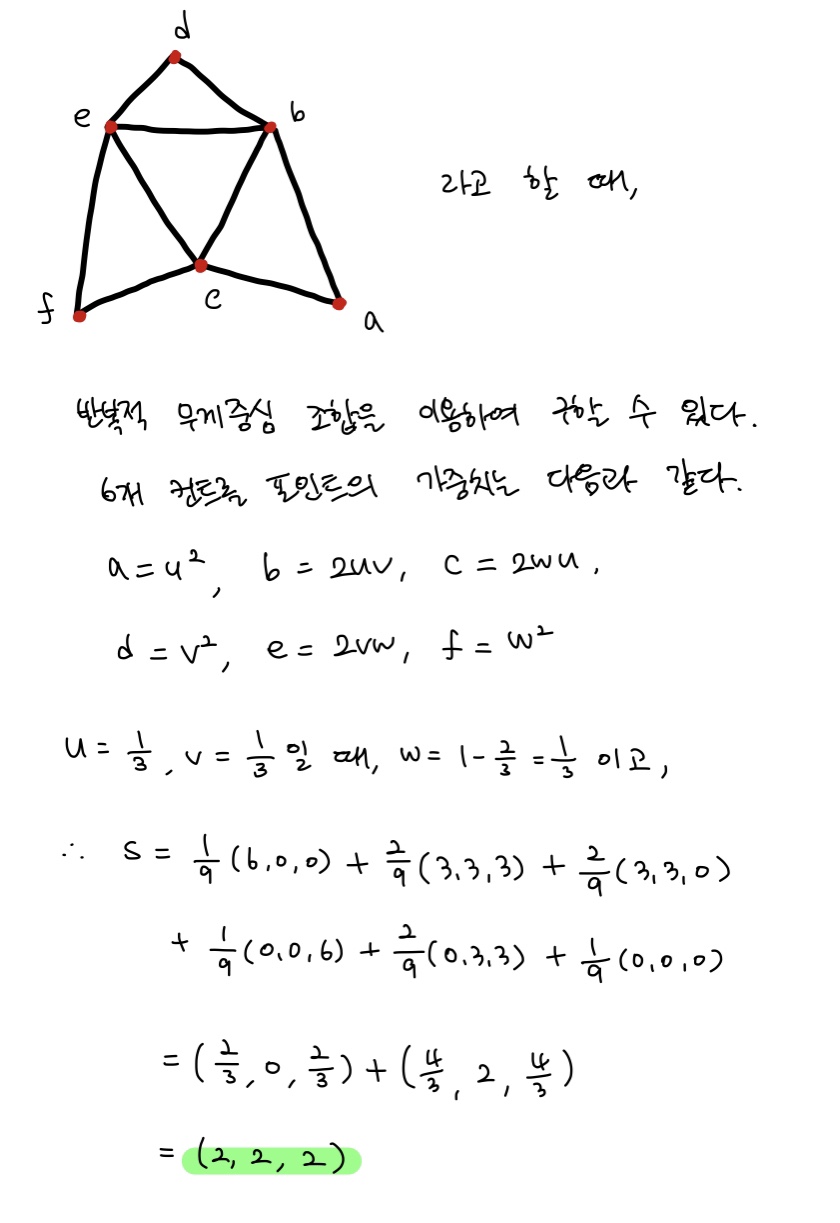 d
e
b
라고 할 때,
c
f
a
반복적 무게중심 조합을 이용하여 구할 수 있다.
6개 컨트롤 포인트의 가중치는 다음과 같다.
a = u², b = 2uv, c = 2wu,
d = v², e = 2vw, f = w²
u = 1/3, v = 1/3 일 때, w = 1 - 2/3 = 1/3 이고,
∴ s = 1/9 (6,0,0) + 2/9 (3,3,3) + 2/9 (3,3,0)
+ 1/9 (0,0,6) + 2/9 (0,3,3) + 1/9 (0,0,0)
= (2/3, 0, 2/3) + (4/3, 2, 4/3)
= (2, 2, 2)